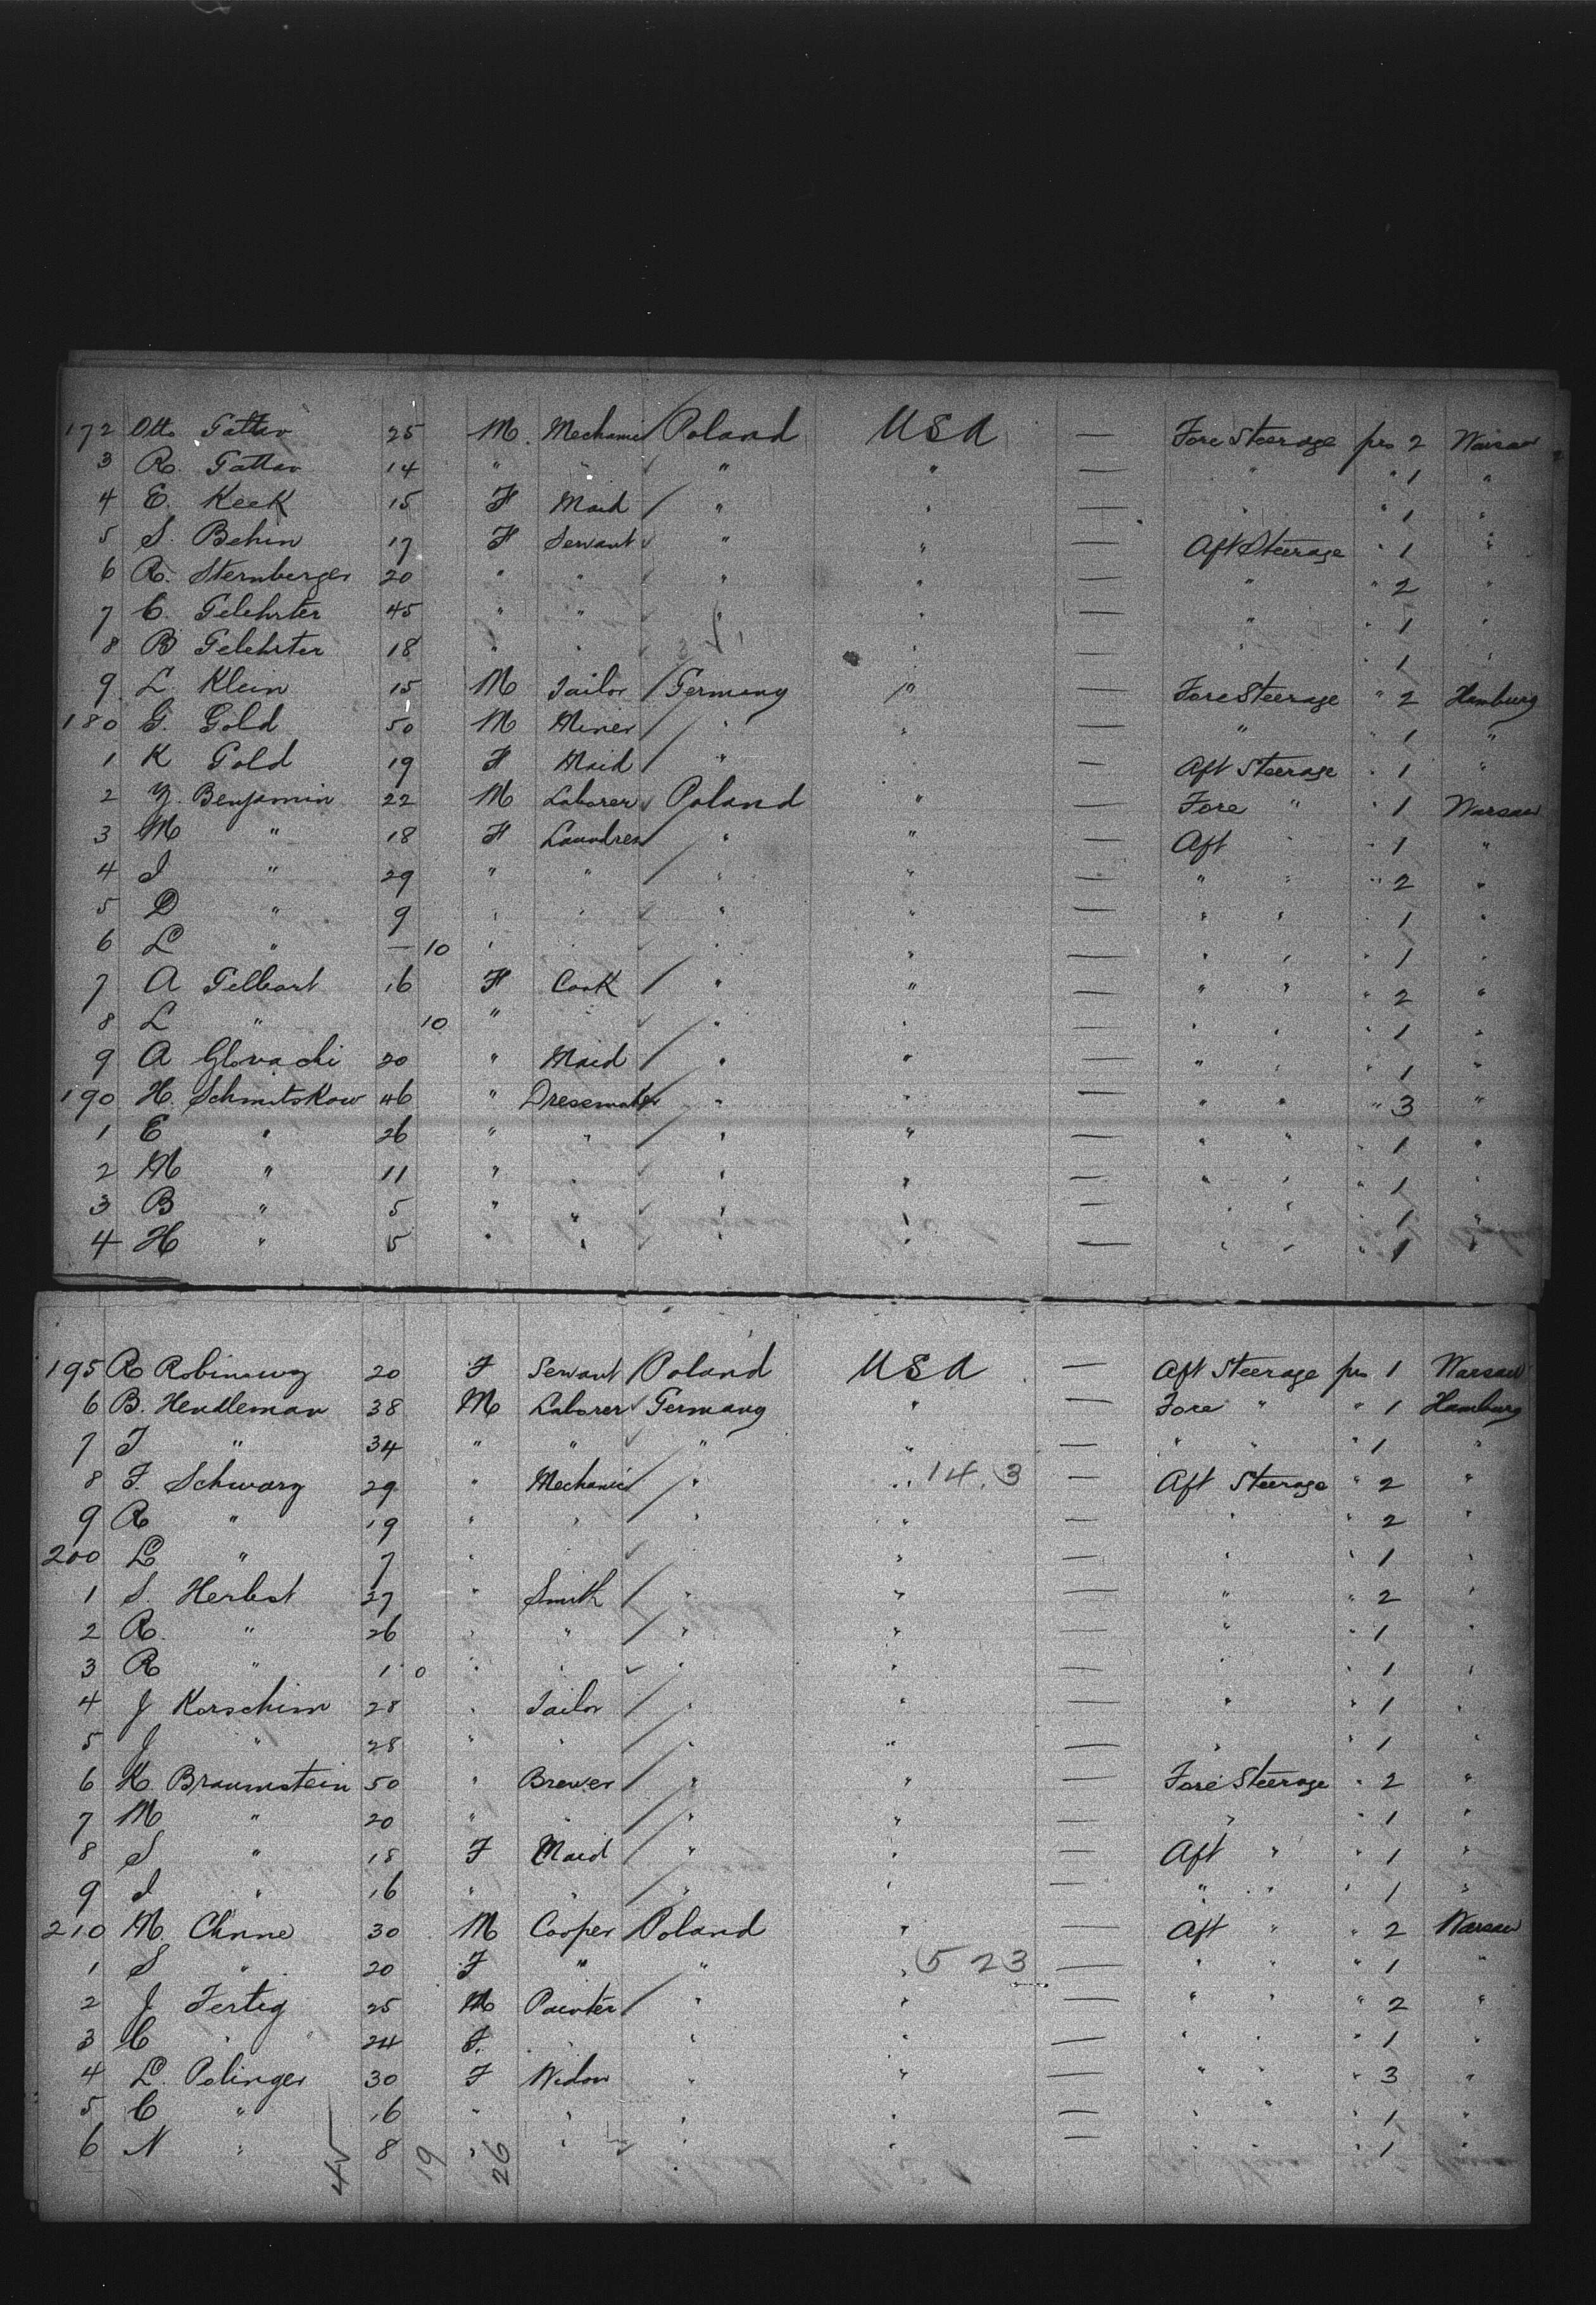 172 Otto Gattav 25 M. Mechanic Poland USA — Fore Steerage ps 2 Warsaw
3 R. Gattav 14 " " " " — " " 1 "
4 E. Keek 15 F Maid " " — " " 1 "
5 S. Behin 17 F Servant " " — Aft Steerage " 1 "
6 R. Sternberger 20 " " " " — " " 2 "
7 C. Gelehrter 45 " " " " — " " 1 "
8 B Gelehrter 18 " " " " — " " 1 "
9 L. Klein 15 M Tailor Germany " — Fore Steerage " 2 Hamburg
180 G. Gold 50 M Miner " " — " " 1 "
1 K Gold 19 F Maid " " — Aft Steerage " 1 "
2 Y. Benjamin 22 M Laborer Poland " — Fore " " 1 Warsaw
3 M " 18 F Laundress " " — Aft " " 1 "
4 I " 29 " " " " — " " " 2 "
5 D " 9 " " " " — " " " 1 "
6 L " — 10 " " " " — " " " 1 "
7 A Gelbart 16 F Cook " " — " " " 2 "
8 L " 10 " " " " — " " " 1 "
9 A Glovachi 20 " Maid " " — " " " 1 "
190 H. Schmitskow 46 " Dressmaker " " — " " " 3 "
1 E " 26 " " " " — " " " 1 "
2 M " 11 " " " " — " " " 1 "
3 B " 5 " " " " — " " " 1 "
4 H " 5 " " " " — " " " 1 "
195 R Robinowz 20 F Servant Poland USA — Aft Steerage ps 1 Warsaw
6 B. Hendleman 38 M Laborer Germany " — Fore " " 1 Hamburg
7 J " 34 " " " " — " " " 1 "
8 F. Schwarz 29 " Mechanic " " 14.3 — Aft Steerage " 2 "
9 R " 19 " " " " — " " 2 "
200 L " 7 " " " " — " " 1 "
1 S. Herbst 27 " Smith " " — " " 2 "
2 R. " 26 " " " " — " " 1 "
3 R " 1 0 " " " " — " " 1 "
4 J Korschinn 28 " Tailor " " — " " 1 "
5 J " 28 " " " " — " " 1 "
6 K Braumstein 50 " Brewer " " — Fore Steerage " 2 "
7 M " 20 " " " " — " " 1 "
8 S " 18 F Maid " " — Aft " " 1 "
9 I " 16 " " " " — " " " 1 "
210 M. Chnne 30 M Cooper Poland " — Aft " " 2 Warsaw
1 S " 20 F " " " 523 — " " " 1 "
2 J Fertig 25 M Painter " " — " " " 2 "
3 C " 24 F. " " " — " " " 1 "
4 L. Polinger 30 F Widow " " — " " " 3 "
5 C " 16 " " " " — " " " 1 "
6 N " 8 " " " " — " " " 1 "
45 19 26